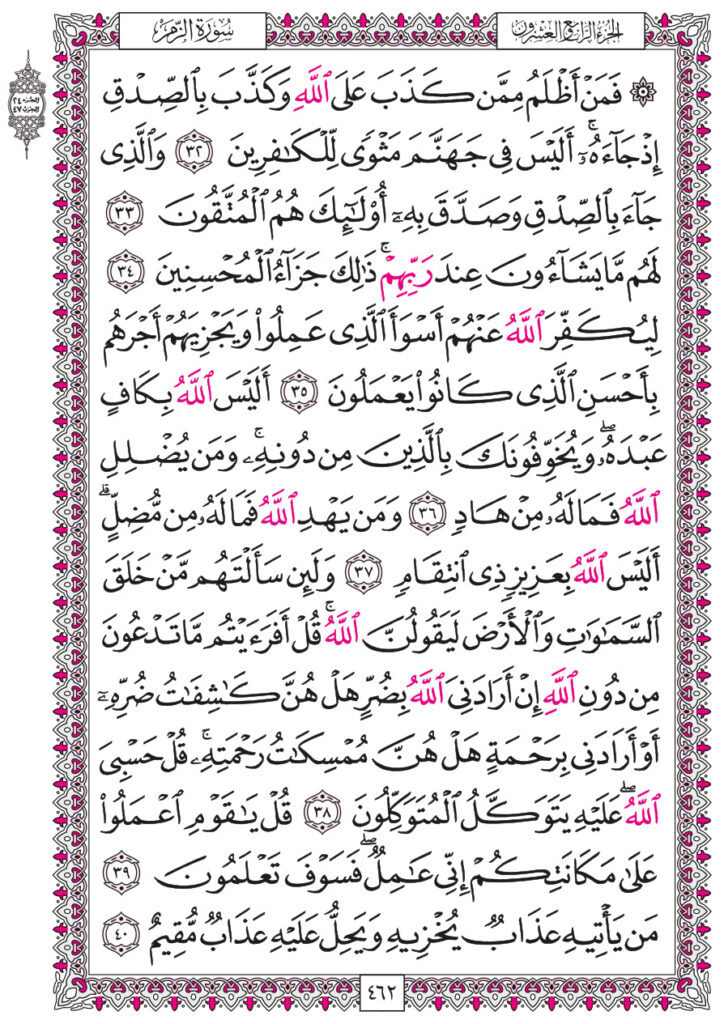 سُورَةُ الزُّمَر
الجُزءُ الرَّابِعُ وَالعِشرُونَ
الجزء ٢٤
الحزب ٤٧
۞ فَمَنْ أَظْلَمُ مِمَّن كَذَبَ عَلَى ٱللَّهِ وَكَذَّبَ بِٱلصِّدْقِ
إِذْ جَآءَهُۥٓ ۚ أَلَيْسَ فِى جَهَنَّمَ مَثْوًى لِّلْكَٰفِرِينَ ٣٢ وَٱلَّذِى
جَآءَ بِٱلصِّدْقِ وَصَدَّقَ بِهِۦٓ ۙ أُو۟لَٰٓئِكَ هُمُ ٱلْمُتَّقُونَ ٣٣
لَهُم مَّا يَشَآءُونَ عِندَ رَبِّهِمْ ۚ ذَٰلِكَ جَزَآءُ ٱلْمُحْسِنِينَ ٣٤
لِيُكَفِّرَ ٱللَّهُ عَنْهُمْ أَسْوَأَ ٱلَّذِى عَمِلُوا۟ وَيَجْزِيَهُمْ أَجْرَهُم
بِأَحْسَنِ ٱلَّذِى كَانُوا۟ يَعْمَلُونَ ٣٥ أَلَيْسَ ٱللَّهُ بِكَافٍ
عَبْدَهُۥ ۖ وَيُخَوِّفُونَكَ بِٱلَّذِينَ مِن دُونِهِۦ ۚ وَمَن يُضْلِلِ
ٱللَّهُ فَمَا لَهُۥ مِنْ هَادٍ ٣٦ وَمَن يَهْدِ ٱللَّهُ فَمَا لَهُۥ مِن مُّضِلٍّ ۗ
أَلَيْسَ ٱللَّهُ بِعَزِيزٍ ذِى ٱنتِقَامٍ ٣٧ وَلَئِن سَأَلْتَهُم مَّنْ خَلَقَ
ٱلسَّمَٰوَٰتِ وَٱلْأَرْضَ لَيَقُولُنَّ ٱللَّهُ ۚ قُلْ أَفَرَءَيْتُم مَّا تَدْعُونَ
مِن دُونِ ٱللَّهِ إِنْ أَرَادَنِىَ ٱللَّهُ بِضُرٍّ هَلْ هُنَّ كَٰشِفَٰتُ ضُرِّهِۦٓ
أَوْ أَرَادَنِى بِرَحْمَةٍ هَلْ هُنَّ مُمْسِكَٰتُ رَحْمَتِهِۦ ۚ قُلْ حَسْبِىَ
ٱللَّهُ ۖ عَلَيْهِ يَتَوَكَّلُ ٱلْمُتَوَكِّلُونَ ٣٨ قُلْ يَٰقَوْمِ ٱعْمَلُوا۟
عَلَىٰ مَكَانَتِكُمْ إِنِّى عَٰمِلٌ ۖ فَسَوْفَ تَعْلَمُونَ ٣٩
مَن يَأْتِيهِ عَذَابٌ يُخْزِيهِ وَيَحِلُّ عَلَيْهِ عَذَابٌ مُّقِيمٌ ٤٠
٤٦٢